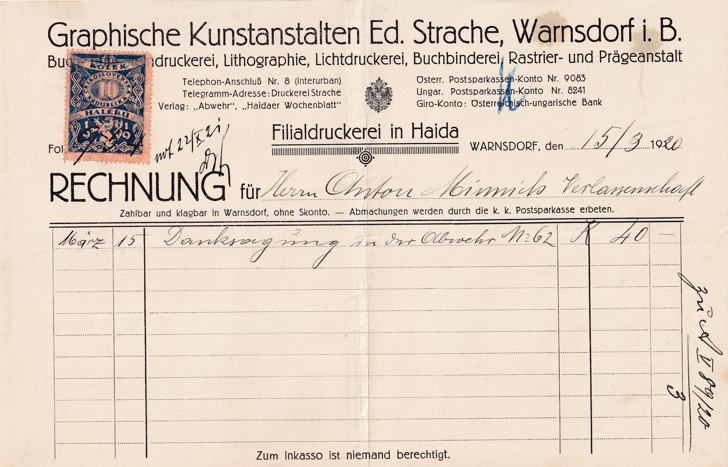 Graphische Kunstanstalten Ed. Strache, Warnsdorf i. B.
druckerei, Lithographie, Lichtdruckerei, Buchbinderei, Rastrier- und Prägeanstalt
Telephon-Anschluß Nr. 8 (interurban)
Telegramm-Adresse: Druckerei Strache
Verlag: „Abwehr“, „Haidaer Wochenblatt“
Österr. Postsparkassen-Konto Nr. 9083
Ungar. Postsparkassen-Konto Nr. 8241
Giro-Konto: Österreichisch-ungarische Bank
KOLEK
10
HALERU
22/X 21
Filialdruckerei in Haida
WARNSDORF, den 15/3 1920
RECHNUNG für Herrn Anton Minnichs Verlassenschaft
Zahlbar und klagbar in Warnsdorf, ohne Skonto. — Abmachungen werden durch die k. k. Postsparkasse erbeten.
März 15 Danksagung in der Abwehr No 62 K 40 —
89/20
3
Zum Inkasso ist niemand berechtigt.